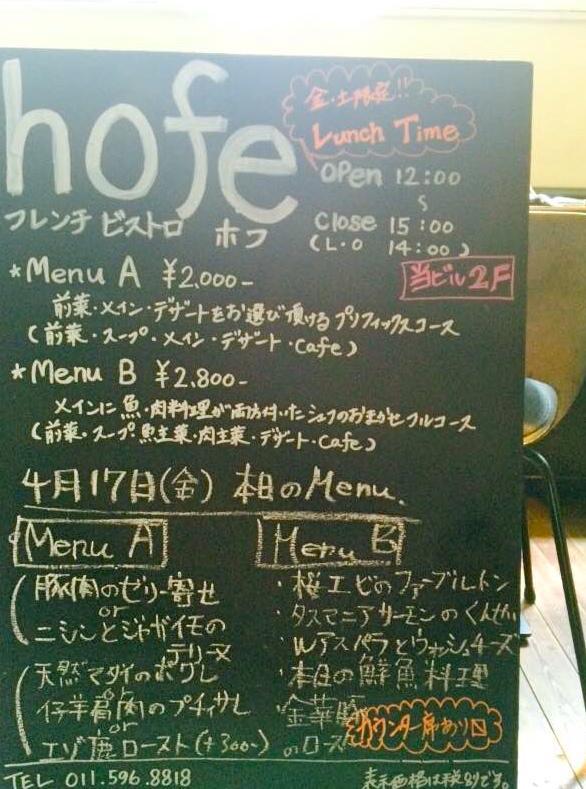 hofe
金・土限定!!
Lunch Time
フレンチ ビストロ ホフ
OPen 12:00
〜
Close 15:00
(L・O 14:00)
当ビル2F
*Menu A ¥2.000-
前菜・メイン・デザートをお選び頂けるプリフィックスコース
(前菜・スープ・メイン・デザート・Cafe)
*Menu B ¥2.800-
メインに魚・肉料理が両方付いたシェフのおまかせフルコース
(前菜・スープ・魚主菜・肉主菜・デザート・Cafe)
4月17日(金) 本日のMenu.
Menu A
豚肉のゼリー寄せ
or
ニシンとジャガイモの
テリーヌ
天然マダイのポワレ
or
仔羊肩肉のプティサレ
or
エゾ鹿ロースト(+300-)
Menu B
・桜エビのファーブルトン
・タスマニアサーモンのくんせい
・Wアスパラとウォッシュチーズ
・本日の鮮魚料理
・金華豚
のロース
カウンター席あり
TEL 011.596.8818
表示価格は税別です。